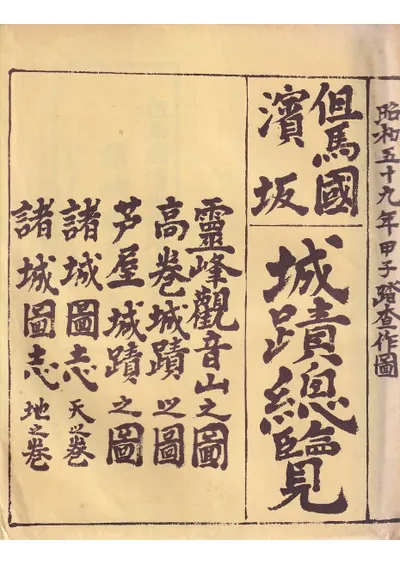 昭和五十九年甲子踏查作圖
但馬國
濱坂
城蹟總覽
靈峰觀音山之圖
高卷城蹟之圖
芦屋城蹟之圖
諸城圖志天之卷
諸城圖志地之卷